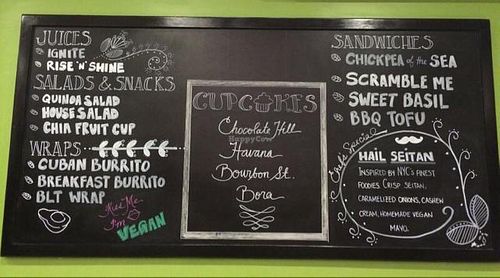 JUICES
IGNITE
RISE 'N' SHINE
SALADS & SNACKS
QUINOA SALAD
HOUSE SALAD
CHIA FRUIT CUP
WRAPS
CUBAN BURRITO
BREAKFAST BURRITO
BLT WRAP
Kiss Me
I'm
VEGAN
CUPCAKES
Chocolate Hill
HappyCow
Havana
Bourbon St.
Bora
SANDWICHES
CHICKPEA of the SEA
SCRAMBLE ME
SWEET BASIL
BBQ TOFU
Chef's Special
HAIL SEITAN
INSPIRED BY NYC'S FINEST
FOODIES. CRISP SEITAN,
CARAMELIZED ONIONS, CASHEW
CREAM, HOMEMADE VEGAN
MAYO.